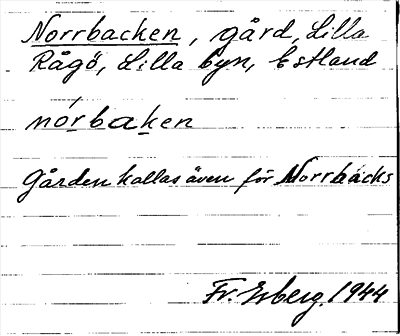 Norrbacken, gård, Lilla
Rågö, Lilla byn, Estland
norbaken
Gården kallas även för Norrbäcks
Fr. 1944